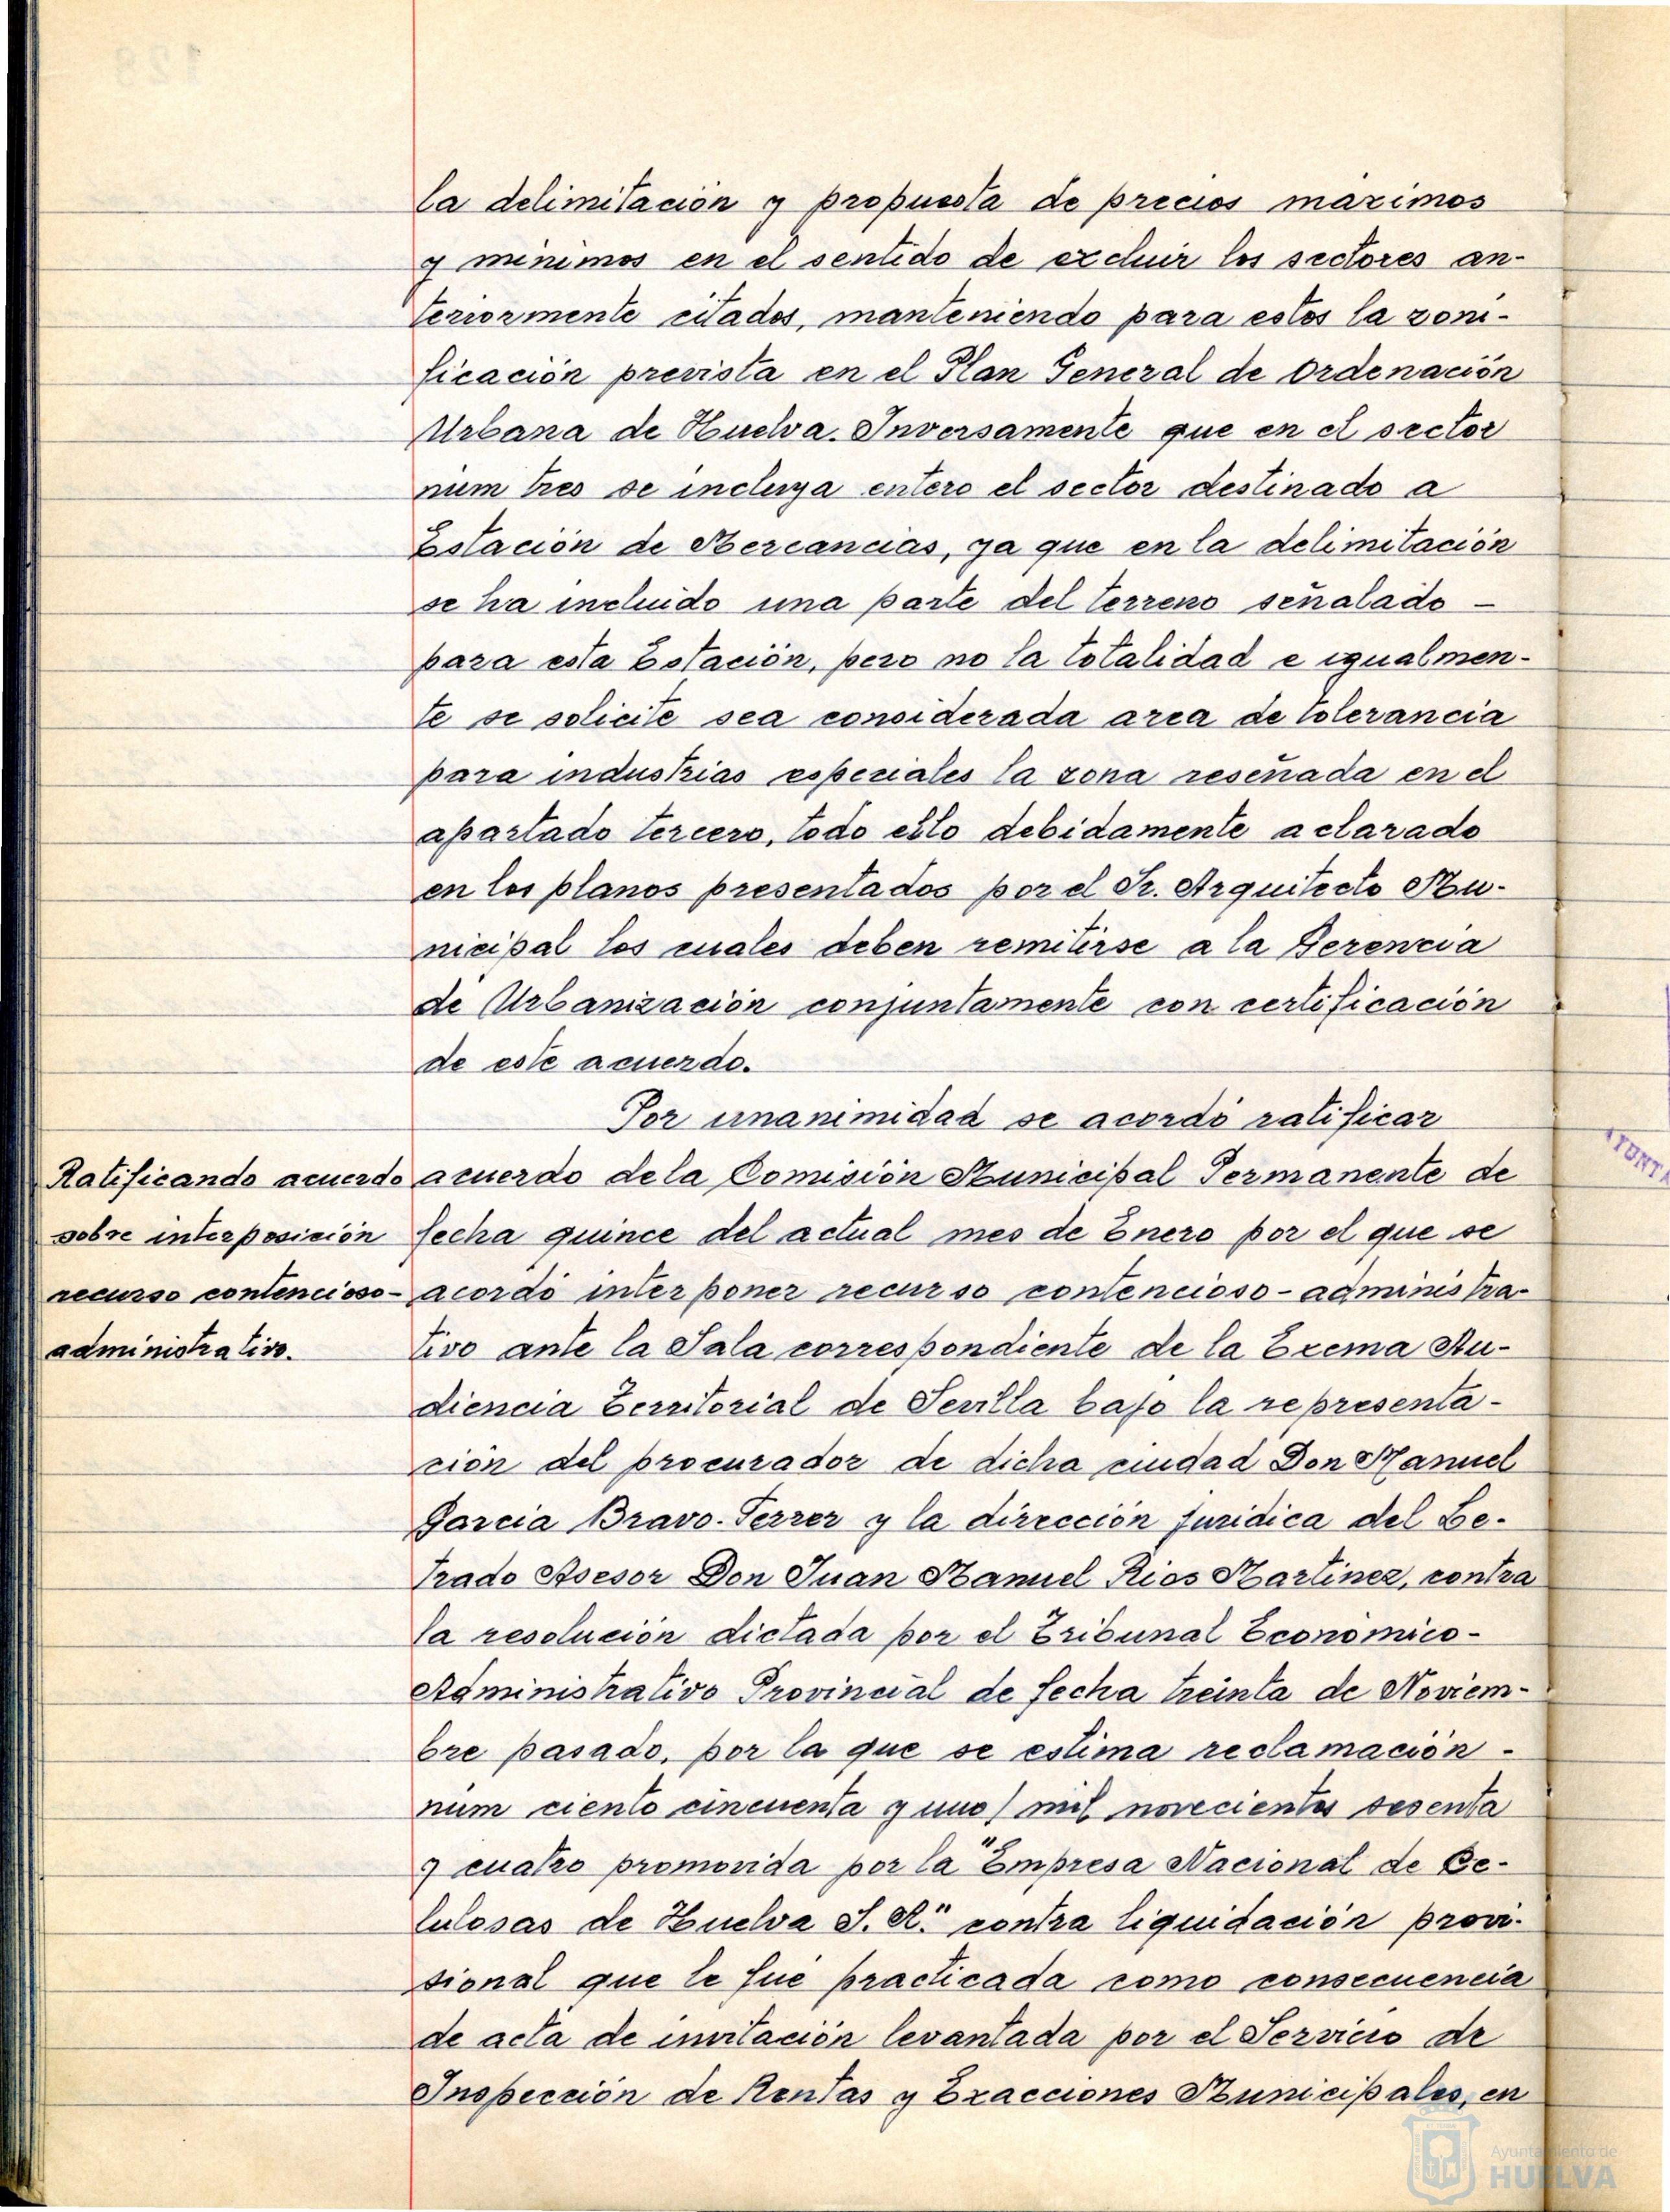 la delimitación y propuesta de precios maximos
y minimos en el sentido de excluir los sectores an-
teriormente citados, manteniendo para estos la zoni-
ficación prevista en el Plan General de Ordenación
Urbana de Huelva. Inversamente que en el sector
núm tres se incluya entero el sector destinado a
Estación de Mercancias, ya que en la delimitación
se ha incluido una parte del terreno señalado -
para esta Estación, pero no la totalidad e igualmen-
te se solicite sea considerada area de tolerancia
para industrias especiales la zona reseñada en el
apartado tercero, todo esto debidamente aclarado
en los planos presentados por el Sr. Arquitecto Mu-
nicipal los cuales deben remitirse a la Gerencia
de Urbanización conjuntamente con certificación
de este acuerdo.
Por unanimidad se acordó ratificar
Ratificando acuerdo
sobre interposición
recurso contencioso-
administrativo.
acuerdo de la Comisión Municipal Permanente de
fecha quince del actual mes de Enero por el que se
acordó interponer recurso contencioso-administra-
tivo ante la Sala correspondiente de la Excma Au-
diencia Territorial de Sevilla bajo la representa-
ción del procurador de dicha ciudad Don Manuel
Garcia Bravo-Ferrer y la dirección juridica del Le-
trado Asesor Don Juan Manuel Rios Martinez, contra
la resolución dictada por el Tribunal Económico-
Administrativo Provincial de fecha treinta de Noviem-
bre pasado, por la que se estima reclamación -
núm ciento cincuenta y uno/ mil novecientos sesenta
y cuatro promovida por la "Empresa Nacional de Ce-
lulosas de Huelva S. A." contra liquidación provi-
sional que le fué practicada como consecuencia
de acta de invitación levantada por el Servicio de
Inspección de Rentas y Exacciones Municipales, en
Ayuntamiento de
HUELVA